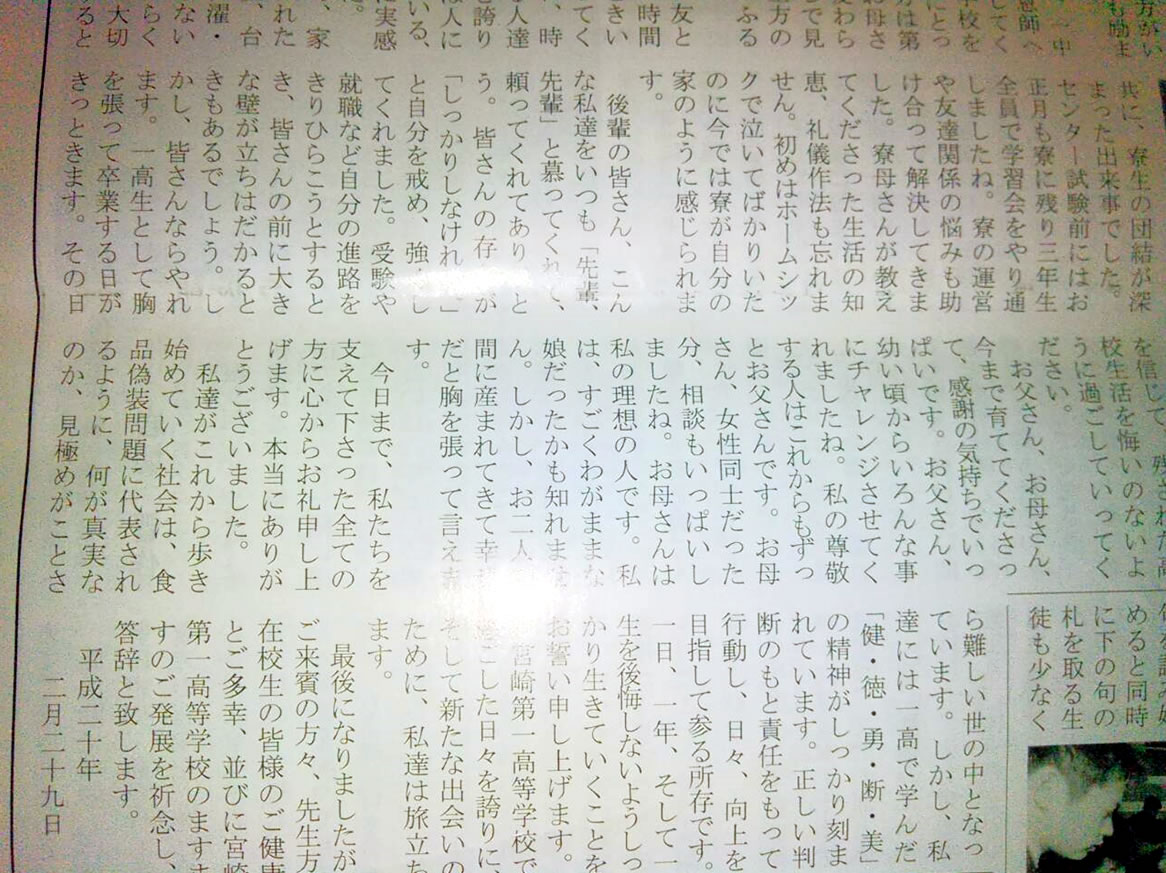 方がい
も励ま
中
恩師へ
してく
学校を
にとっ
方は第
お母さ
変わら
して見
方の
ふる
友と
時間
きい
てく
、時
人達
誇り
は人に
いる、
に実感
た。
、家
れた
、台
濯・
ない
らく
大切
ると
共に、寮生の団結が深
まった出来事でした。
センター試験前にはお
正月も寮に残り三年生
全員で学習会をやり通
しましたね。寮の運営
や友達関係の悩みも助
け合って解決してきま
した。寮母さんが教え
てくださった生活の知
恵、礼儀作法も忘れま
せん。初めはホームシッ
クで泣いてばかりいた
のに今では寮が自分の
家のように感じられま
す。
後輩の皆さん、こん
な私達をいつも「先輩、
先輩」と慕ってくれて、
頼ってくれてあり と
う。皆さんの存 が
「しっかりしなけれ 」
と自分を戒め、強 し
てくれました。受験や
就職など自分の進路を
きりひらこうとすると
き、皆さんの前に大き
な壁が立ちはだかると
きもあるでしょう。し
かし、皆さんならやれ
ます。一高生として胸
を張って卒業する日が
きっときます。その日
を信じて、残された高
校生活を悔いのないよ
うに過ごしていってく
ださい。
お父さん、お母さん、
今まで育ててくださっ
て、感謝の気持ちでいっ
ぱいです。お父さん、
幼い頃からいろんな事
にチャレンジさせてく
れましたね。私の尊敬
する人はこれからもずっ
とお父さんです。お母
さん、女性同士だった
分、相談もいっぱいし
ましたね。お母さんは
私の理想の人です。私
は、すごくわがままな
娘だったかも知れませ
ん。しかし、お二人
間に産まれてきて幸
だと胸を張って言えま
す。
今日まで、私たちを
支えて下さった全ての
方に心からお礼申し上
げます。本当にありが
とうございました。
私達がこれから歩き
始めていく社会は、食
品偽装問題に代表され
るように、何が真実な
のか、見極めがことさ
めると同時
に下の句の
札を取る生
徒も少なく
ら難しい世の中となっ
ています。しかし、私
達には一高で学んだ
「健・徳・勇・断・美」
の精神がしっかり刻ま
れています。正しい判
断のもと責任をもって
行動し、日々、向上を
目指して参る所存です。
一日、一年、そして一
生を後悔しないようしっ
かり生きていくことを
お誓い申し上げます。
宮崎第一高等学校で
過ごした日々を誇りに、
そして新たな出会いの
ために、私達は旅立ち
ます。
最後になりましたが
ご来賓の方々、先生方
在校生の皆様のご健康
とご多幸、並びに宮崎
第一高等学校のますま
すのご発展を祈念し、
答辞と致します。
平成二十年
二月二十九日